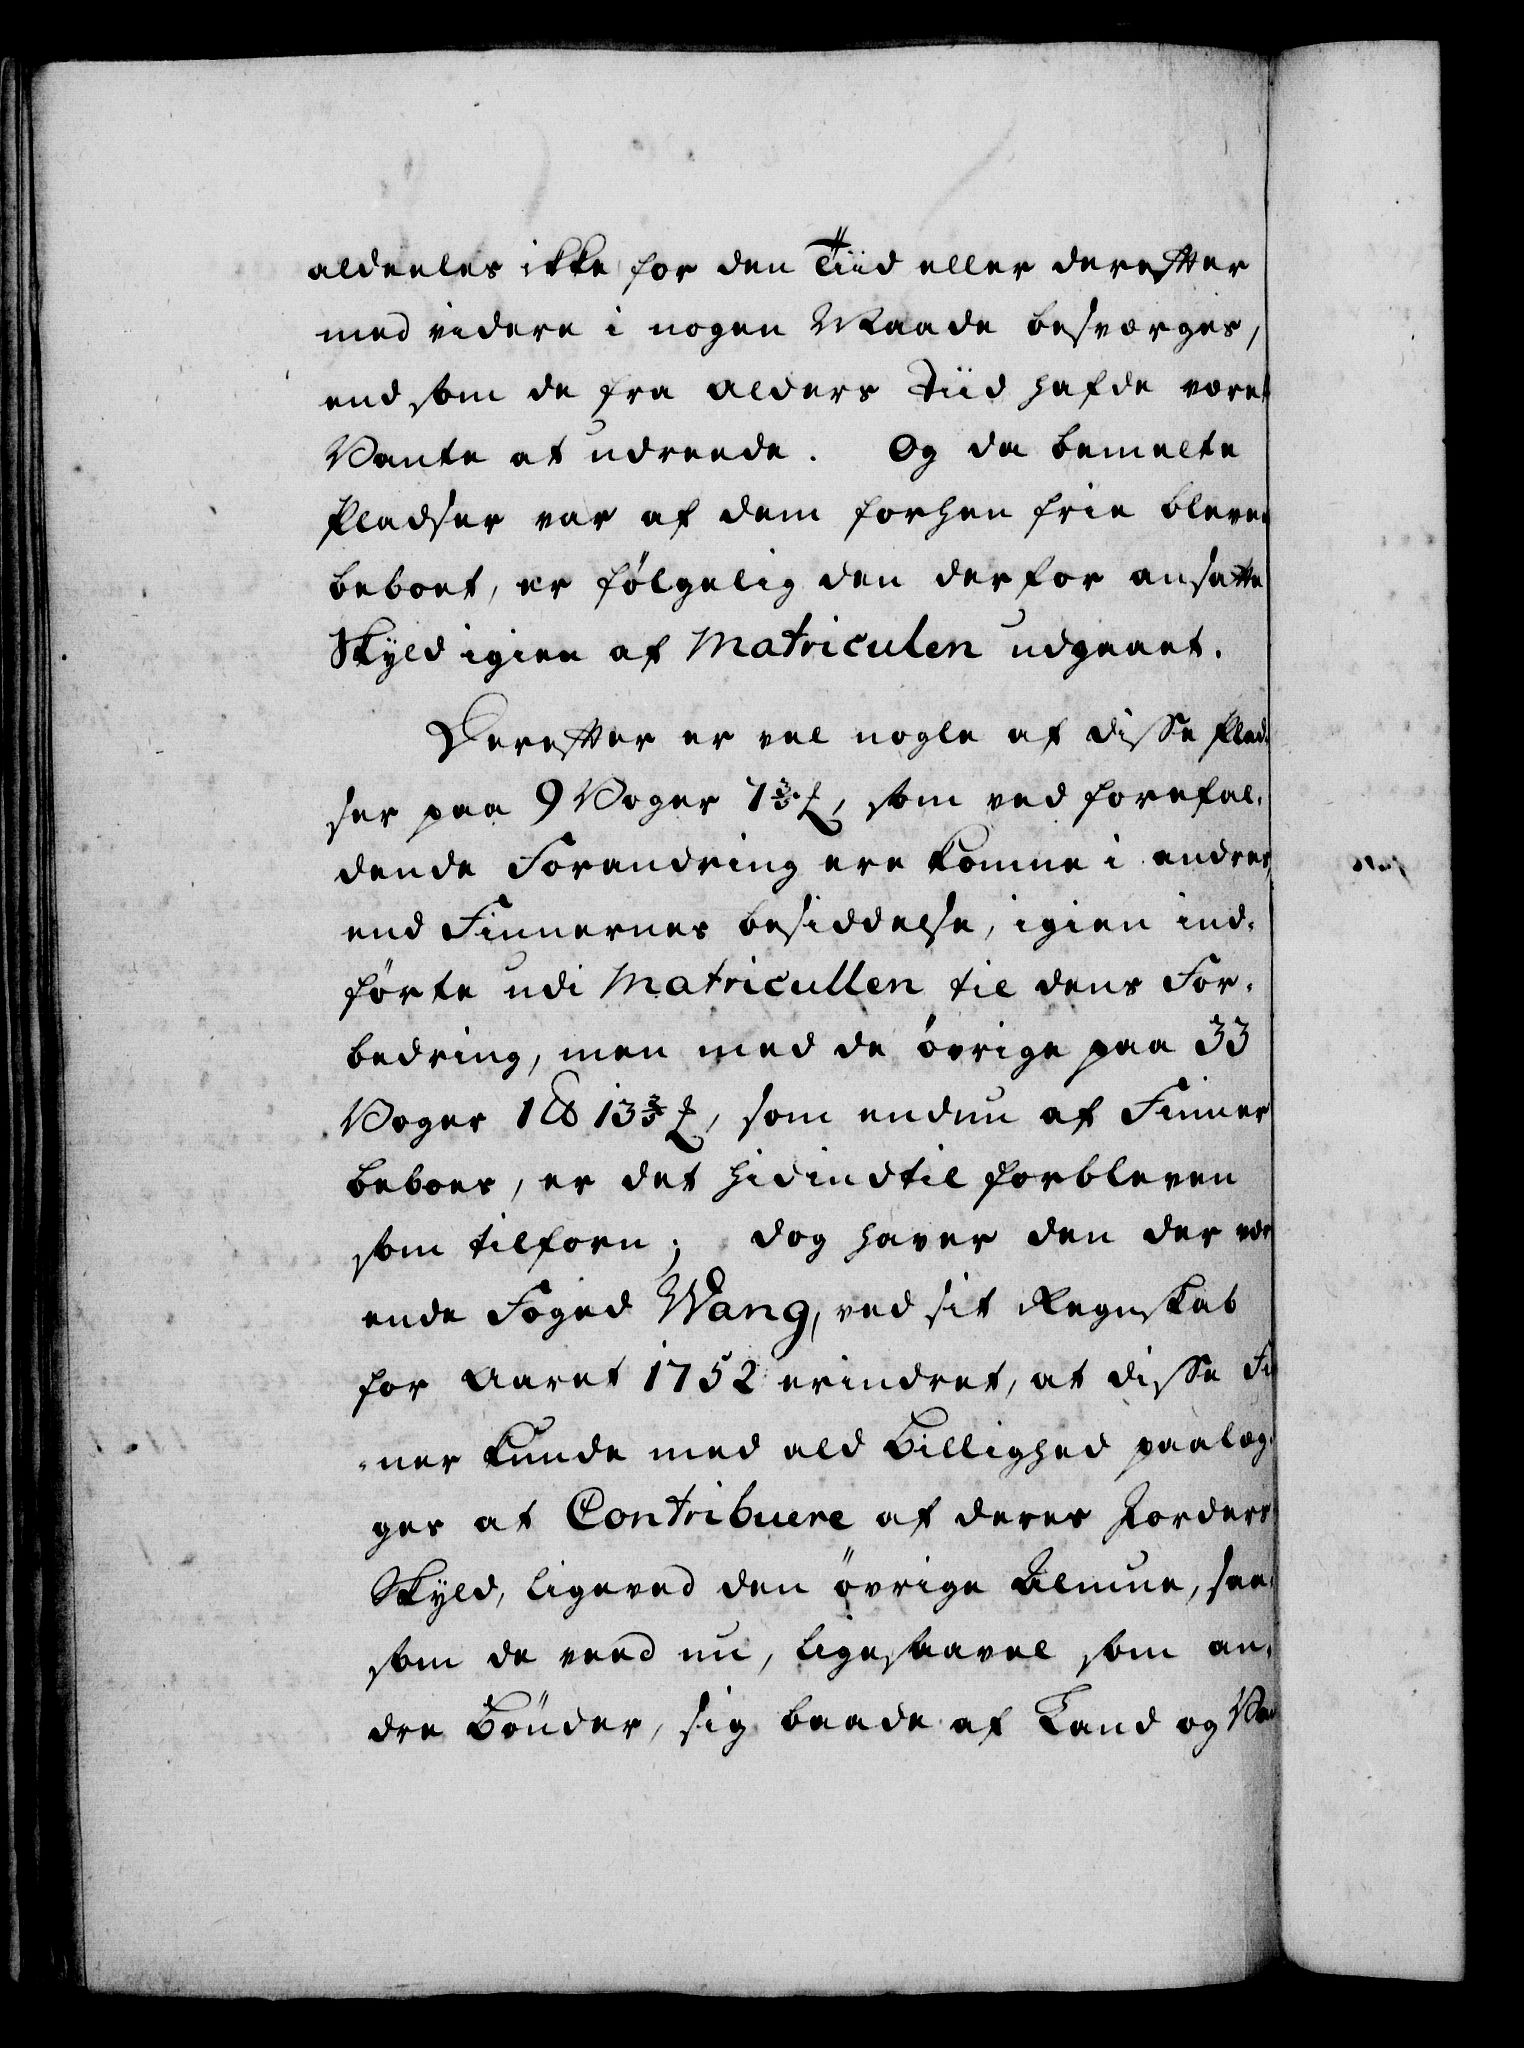 aldeeles ikke for den Tiid eller derefter
med videre i nogen Maade besværges,
end som de fra Alders Tiid hafde været
Vante at udreede. Og da bemelte
Pladser var af dem forhen frie bleven
beboet, er følgelig den derfor ansatte
Skyld igien af Matriculen udgaaet.
Derefter er vel nogle af disse Plad-
ser paa 9 Voger 7 3/5 ℔, som ved forefal-
dende Forandring ere komne i andres
end Finnernes besiddelse, igien ind-
førte udi Matricullen til dens For-
bedring, men med de øvrige paa 33
Voger 1 13 3/5 ℔, som endnu af Finner
beboes, er det hidindtil forbleven
som tilforn; dog haver den der vær
ende Foged Wang, ved sit Regnskab
for Aaret 1752 erindret, at disse Fi
-ner kunde med ald Billighed paalæg-
ges at Contribuere af deres Jorders
Skyld, ligeved den øvrige Almue, saa-
som de veed nu, ligesaavel som an-
dre Bønder, sig baade af Land og